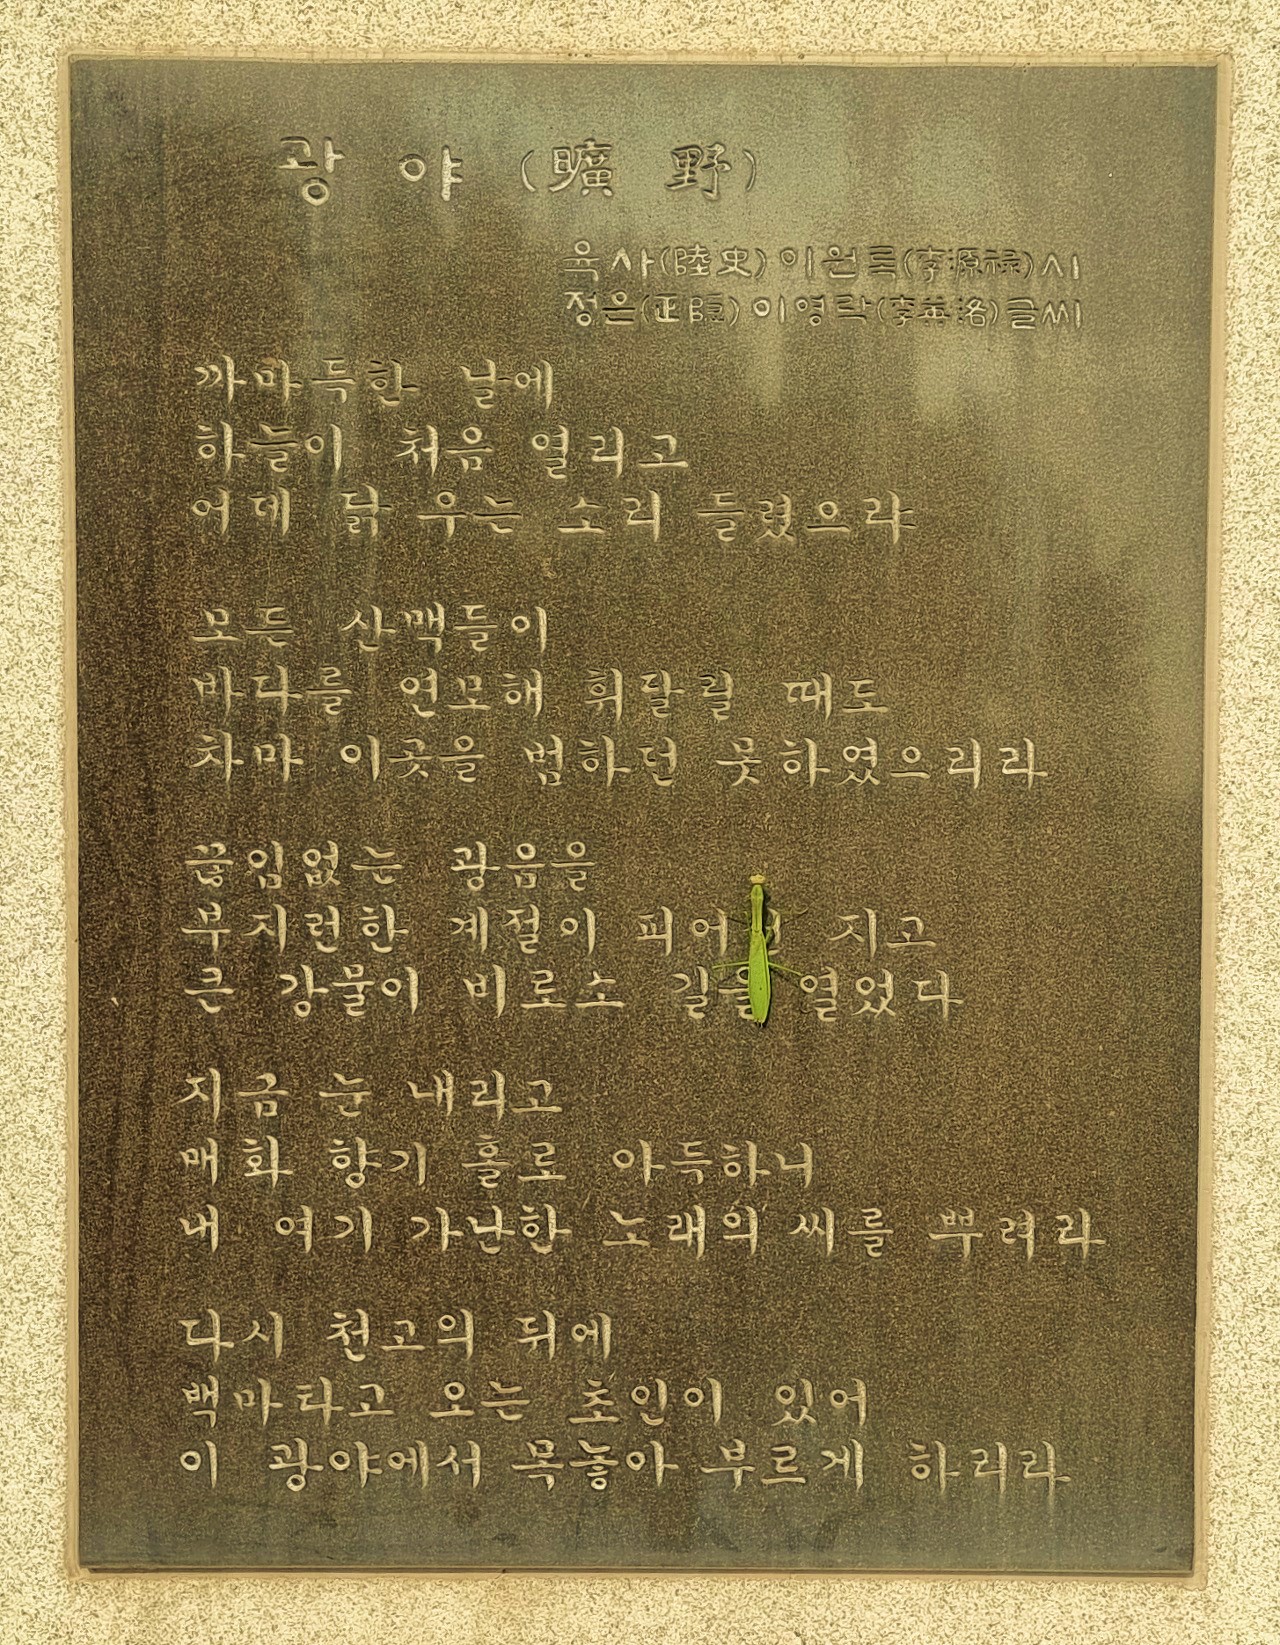 광야 (曠野)
육사(陸史) 이원록(李源祿)시
정은(正隱) 이영락(李英洛)글씨
까마득한 날에
하늘이 처음 열리고
어데 닭 우는 소리 들렸으랴
모든 산맥들이
바다를 연모해 휘달릴 때도
차마 이곳을 범하던 못하였으리라
끊임없는 광음을
부지런한 계절이 지고
큰 강물이 비로소 길을 열었다
지금 눈 내리고
매화 향기 홀로 아득하니
내 여기 가난한 노래의 씨를 뿌려라
다시 천고의 뒤에
백마타고 오는 초인이 있어
이 광야에서 목놓아 부르게 하리라